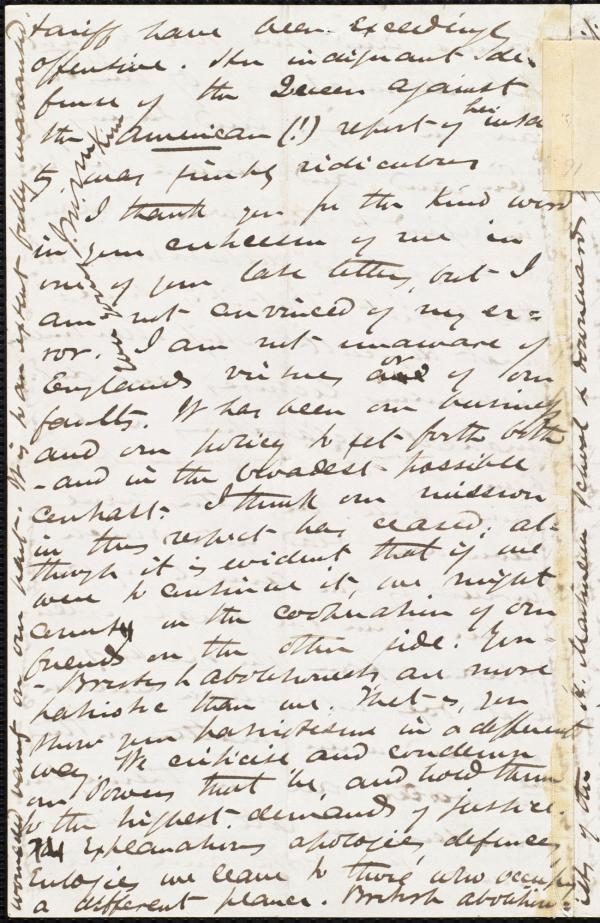 tariff have been exceedingly
offensive. Her indignant de-
fence of the Queen against
the american (!) report of her insa-
ty, was simply ridiculous
I thank you for the kind word
in your criticism of me in
one of your late letters, but I
am not convinced of my er=
ror. I am not unaware of
Englands virtues or of our
faults. It has been our business
and our policy to set forth both
- and in the broadest possible
contrast. I think our mission
in this respect has ceased; al-
though it is evident that if we
were to continue it, we might
count on the cooperation of our
friends on the other side. You-
- British abolitionists are more
patriotic than we. That is, you
show your patriotism in a different
way. We criticise and condemn
our "Powers that be, and hold them
to the highest demands of justice.
Explanations, apologies, defences,
Eulogies we leave to those who occupy
a different plane. British abolition=
on our part. It is to an extent fully warranted
J. M. McKim
of the H. Martineau school & downwards